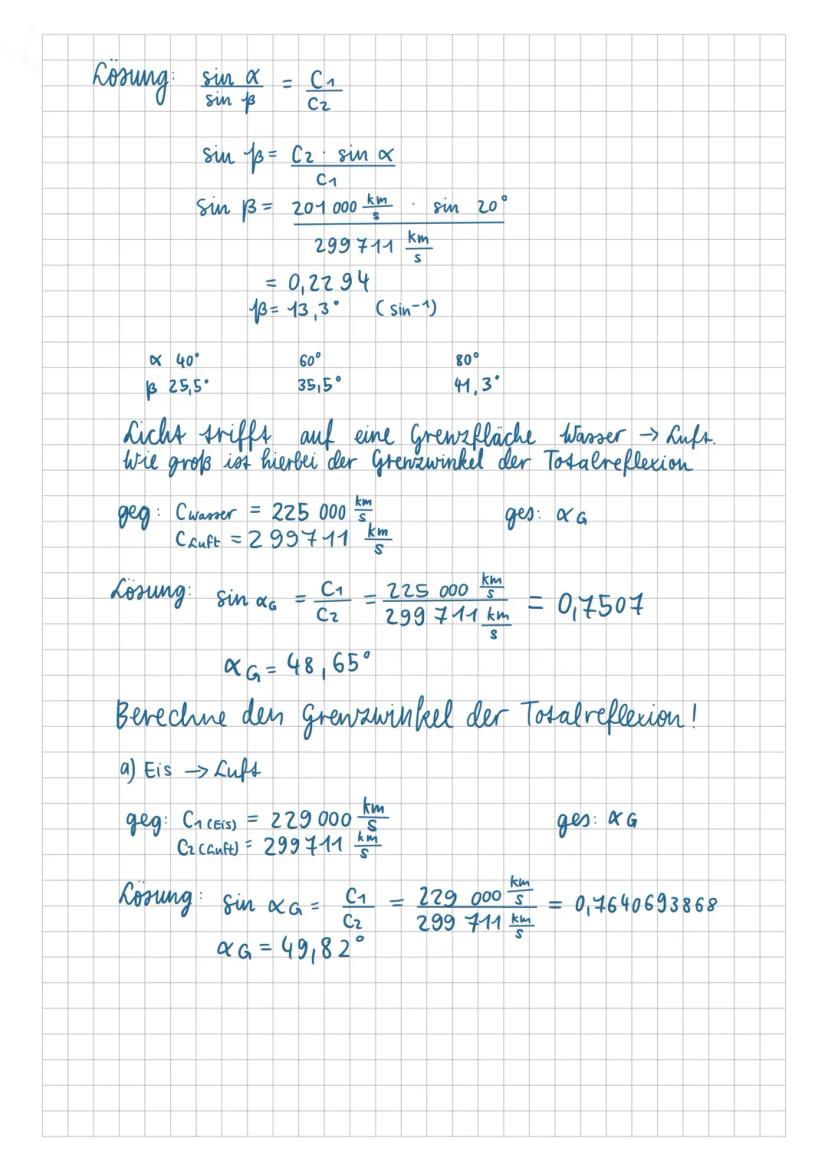 Lösung: sin α / sin β = C1 / C2
sin β = C2 · sin α / C1
sin β = 201 000 km/s · sin 20° / 299 711 km/s
= 0,2294
β = 13,3° (sin⁻¹)
α 40° 60° 80°
β 25,5° 35,5° 41,3°
Licht trifft auf eine Grenzfläche Wasser → Luft.
Wie groß ist hierbei der Grenzwinkel der Totalreflexion
geg: CWasser = 225 000 km/s ges: αG
CLuft = 299711 km/s
Lösung: sin αG = C1 / C2 = 225 000 km/s / 299 711 km/s = 0,7507
αG = 48,65°
Berechne den Grenzwinkel der Totalreflexion!
a) Eis → Luft
geg: C1 (Eis) = 229 000 km/s ges: αG
C2 (Luft) = 299711 km/s
Lösung: sin αG = C1 / C2 = 229 000 km/s / 299 711 km/s = 0,7640693868
αG = 49,82°